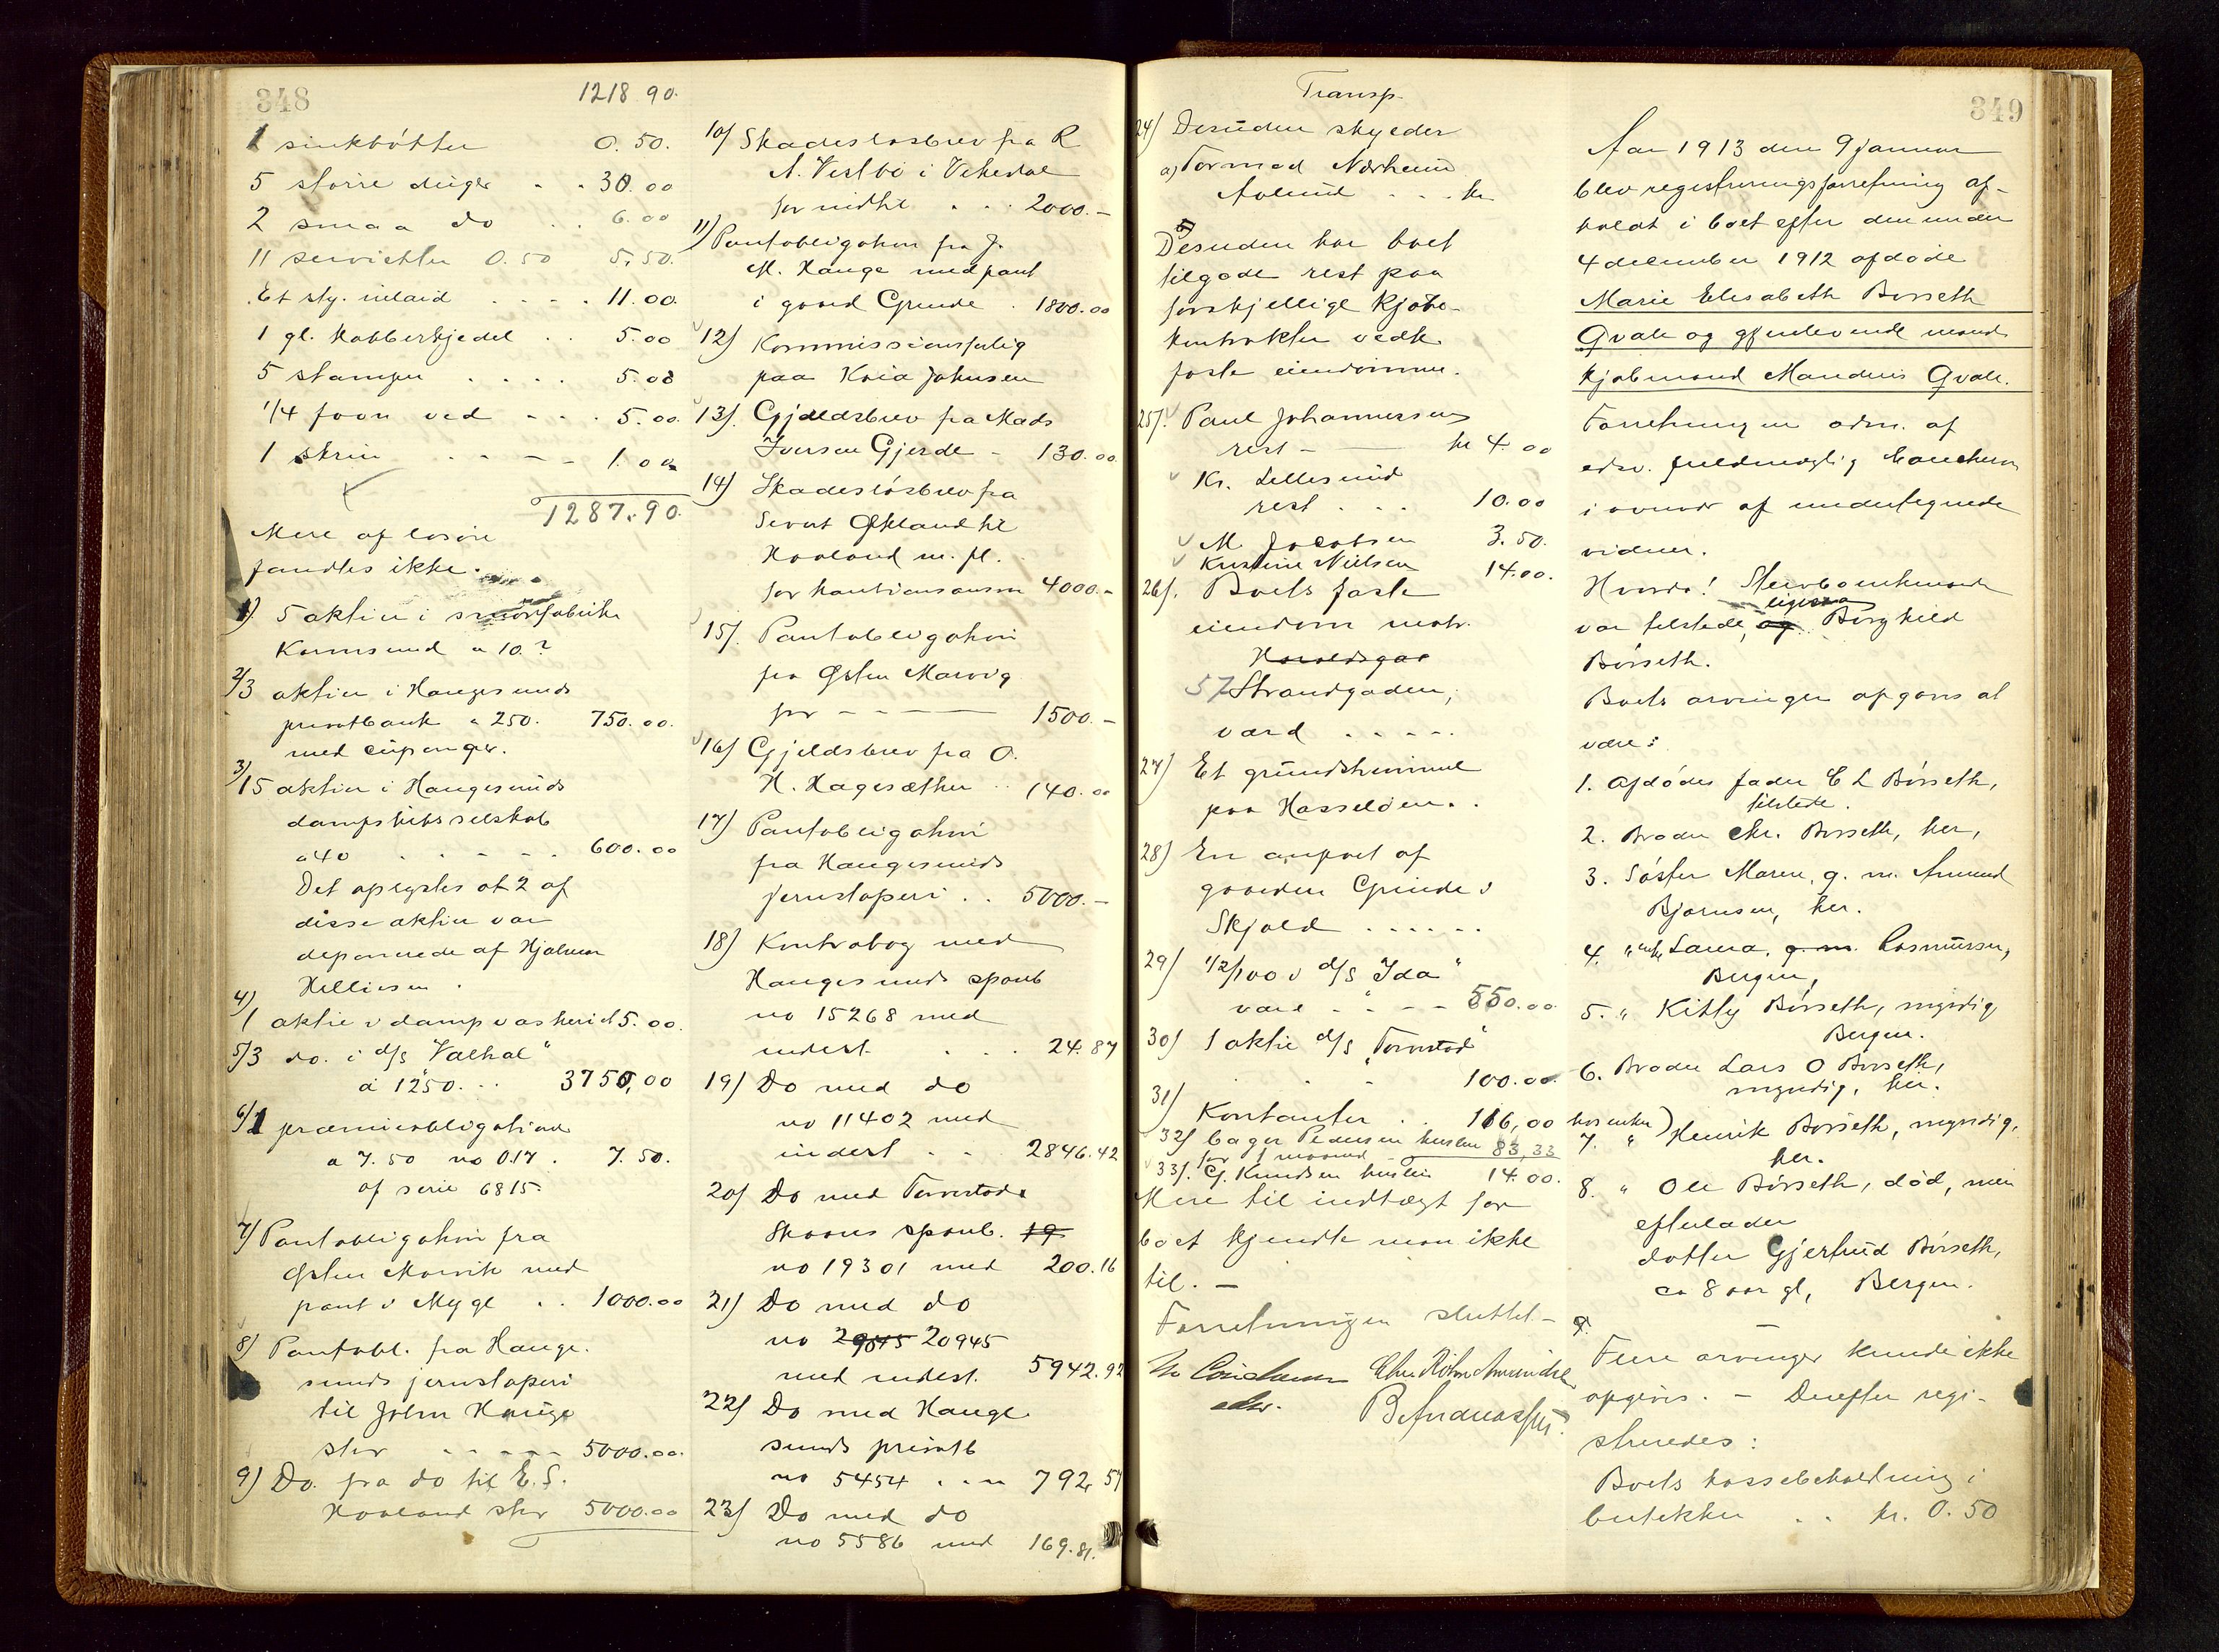 348
1218 90.
1 sinkbøtter 0.50.
5 større duger . . 30.00
2 smaa do . . 6.00
11 servietter 0.50 5.50.
Et sty. inlaid . . . . 11.00.
1 gl. kobberkjedel . . 5.00
5 stamper . . . . 5.00
1/4 favn ved - - . 5.00.
1 skrin . . - - 1.00
1287.90.
Mere af løsøre
fandtes ikke.
1) 5 aktier i smørfabrikk
Karmsund a 10.?
2) 3 aktier i Haugesunds
privatbank a 250. 750.00.
med cuponger.
3) 15 aktier i Haugesunds
dampskibsselskab
a 40 . . - - . 600.00
Det oplystes at 2 af
disse aktier var
deponerede af Hjalmar
Helliesen.
4) 1 aktie i dampvaskeriet 5.00.
5) 3 do. i d/s "Valhal"
a 1250. . . 3750,00
6) 1 præmieobligation
a 7.50 no 017 . 7.50.
af serie 6815.
7) Pantobligation fra
Østen Marvik med
pant i Myge . . 1000.00
8) Pantobl. fra Hauge-
sunds jernstøperi
til John Hauge
stor - - - - - 5000.00.
9) Do. fra do til E. S.
Haaland stor 5000.00
10) Skadesløsbrev fra R
A. Vestbø i Vikedal
for indtil . . . 2000.-
11) Pantobligation fra J.
M. Hauge med pant
i gaard Grinde . 1800.00
12) Kommissionsforlig
paa Kaia Johnsen
13). Gjældsbrev fra Mads
Iversen Gjerde - 130.00
14) Skadesløsbrev fra
Sivert Økland til
Haaland m. fl.
for kautionsansvar 4000.-
15). Pantobligation
fra Østen Marvig
for - - - 1500.-
16) Gjeldsbrev fra O.
H. Hagesæther . . 140.00
17) Pantobligation
fra Haugesunds
jernstøperi . . 5000.-
18) Kontrabog med
Haugesunds sparb
no 15268 med
indest. . . . 24.87
19) Do med do
no 11402 med
indest . - 2846.42
20) Do med Torvestad &
Skaares sparb. 19
no 19301 med 200.16
21) Do med do
no 29845 20945
med indest. 5942.92
22) Do med Hauge
sunds privatb
no 5454 . . . 792,57
23) Do med do
no 5586 med 169.81.
Transp.
24) Desuden skylder
a) Tormod Nærheim
Aalund . . . kr
Desuden har boet
tilgode rest paa
forskjellige kjøbe-
kontrakter vedk.
faste eiendomme.
25). Paul Johannessen
rest - kr 4.00
Kr. Lillesund
rest . . . 10.00
M. Jacobsen 3.50.
Kristine Nielsen 14.00.
26). Boets faste
eiendom matr.
Haraldsgad
57 Strandgaden,
værd . . . . .
27) Et grundstemme
paa Hasseløen. .
28) En anpart af
gaarden Grinde i
Skjold . . . . . .
29) 1/2/100 i d/s "Ida"
værd - " - - 550.00
30) 1 aktie d/s "Torvestad"
. . - 100.00.
31) Kontanter . . 116,00 hos enkem)
32) Cager Pedersen husleie 83,33
for 1 maaned
33). G. Knudsen husleie 14.00.
Mere til indtægt for
boet kjendte man ikke
til. -
Forretningen sluttet -
B Andreassen
349
Aar 1913 den 9 januar
blev registreringsforretning af-
holdt i boet efter den under
4 december 1912 afdøde
Marie Elisabeth Børseth
Qvale og gjenlevende mand
kjøbmand Mandius Qvale.
Forretningen adm. af
edsv. fuldmægtig Conchurn
i overvær af undertegnede
vidner.
Hvorda! Stervboenkemand
ligesaa
var tilstede, og Borghild
Børseth.
Boets arvinger opgaves at
være:
1. Afdødes fader C L Børseth,
tilstede.
2. Broder Chr. Børseth, her,
3. Søster Maren, g. m. Amund
Bjørnsen, her.
4. " enke Laura, g. m. Rasmussen,
Bergen,
5. " Kitty Børseth, myndig,
Bergen.
6. Broder Lars O Børseth,
myndig, her.
7. " Henrik Børseth, myndig,
her.
8. " Ole Børseth, død, men
efterlader
datter Gjertrud Børseth,
ca 8 aar gl, Bergen.
9. -
Flere arvinger kunde ikke
opgives. - Derefter regi-
streredes:
Boets kassebeholdning i
butikken . . kr. 0.50